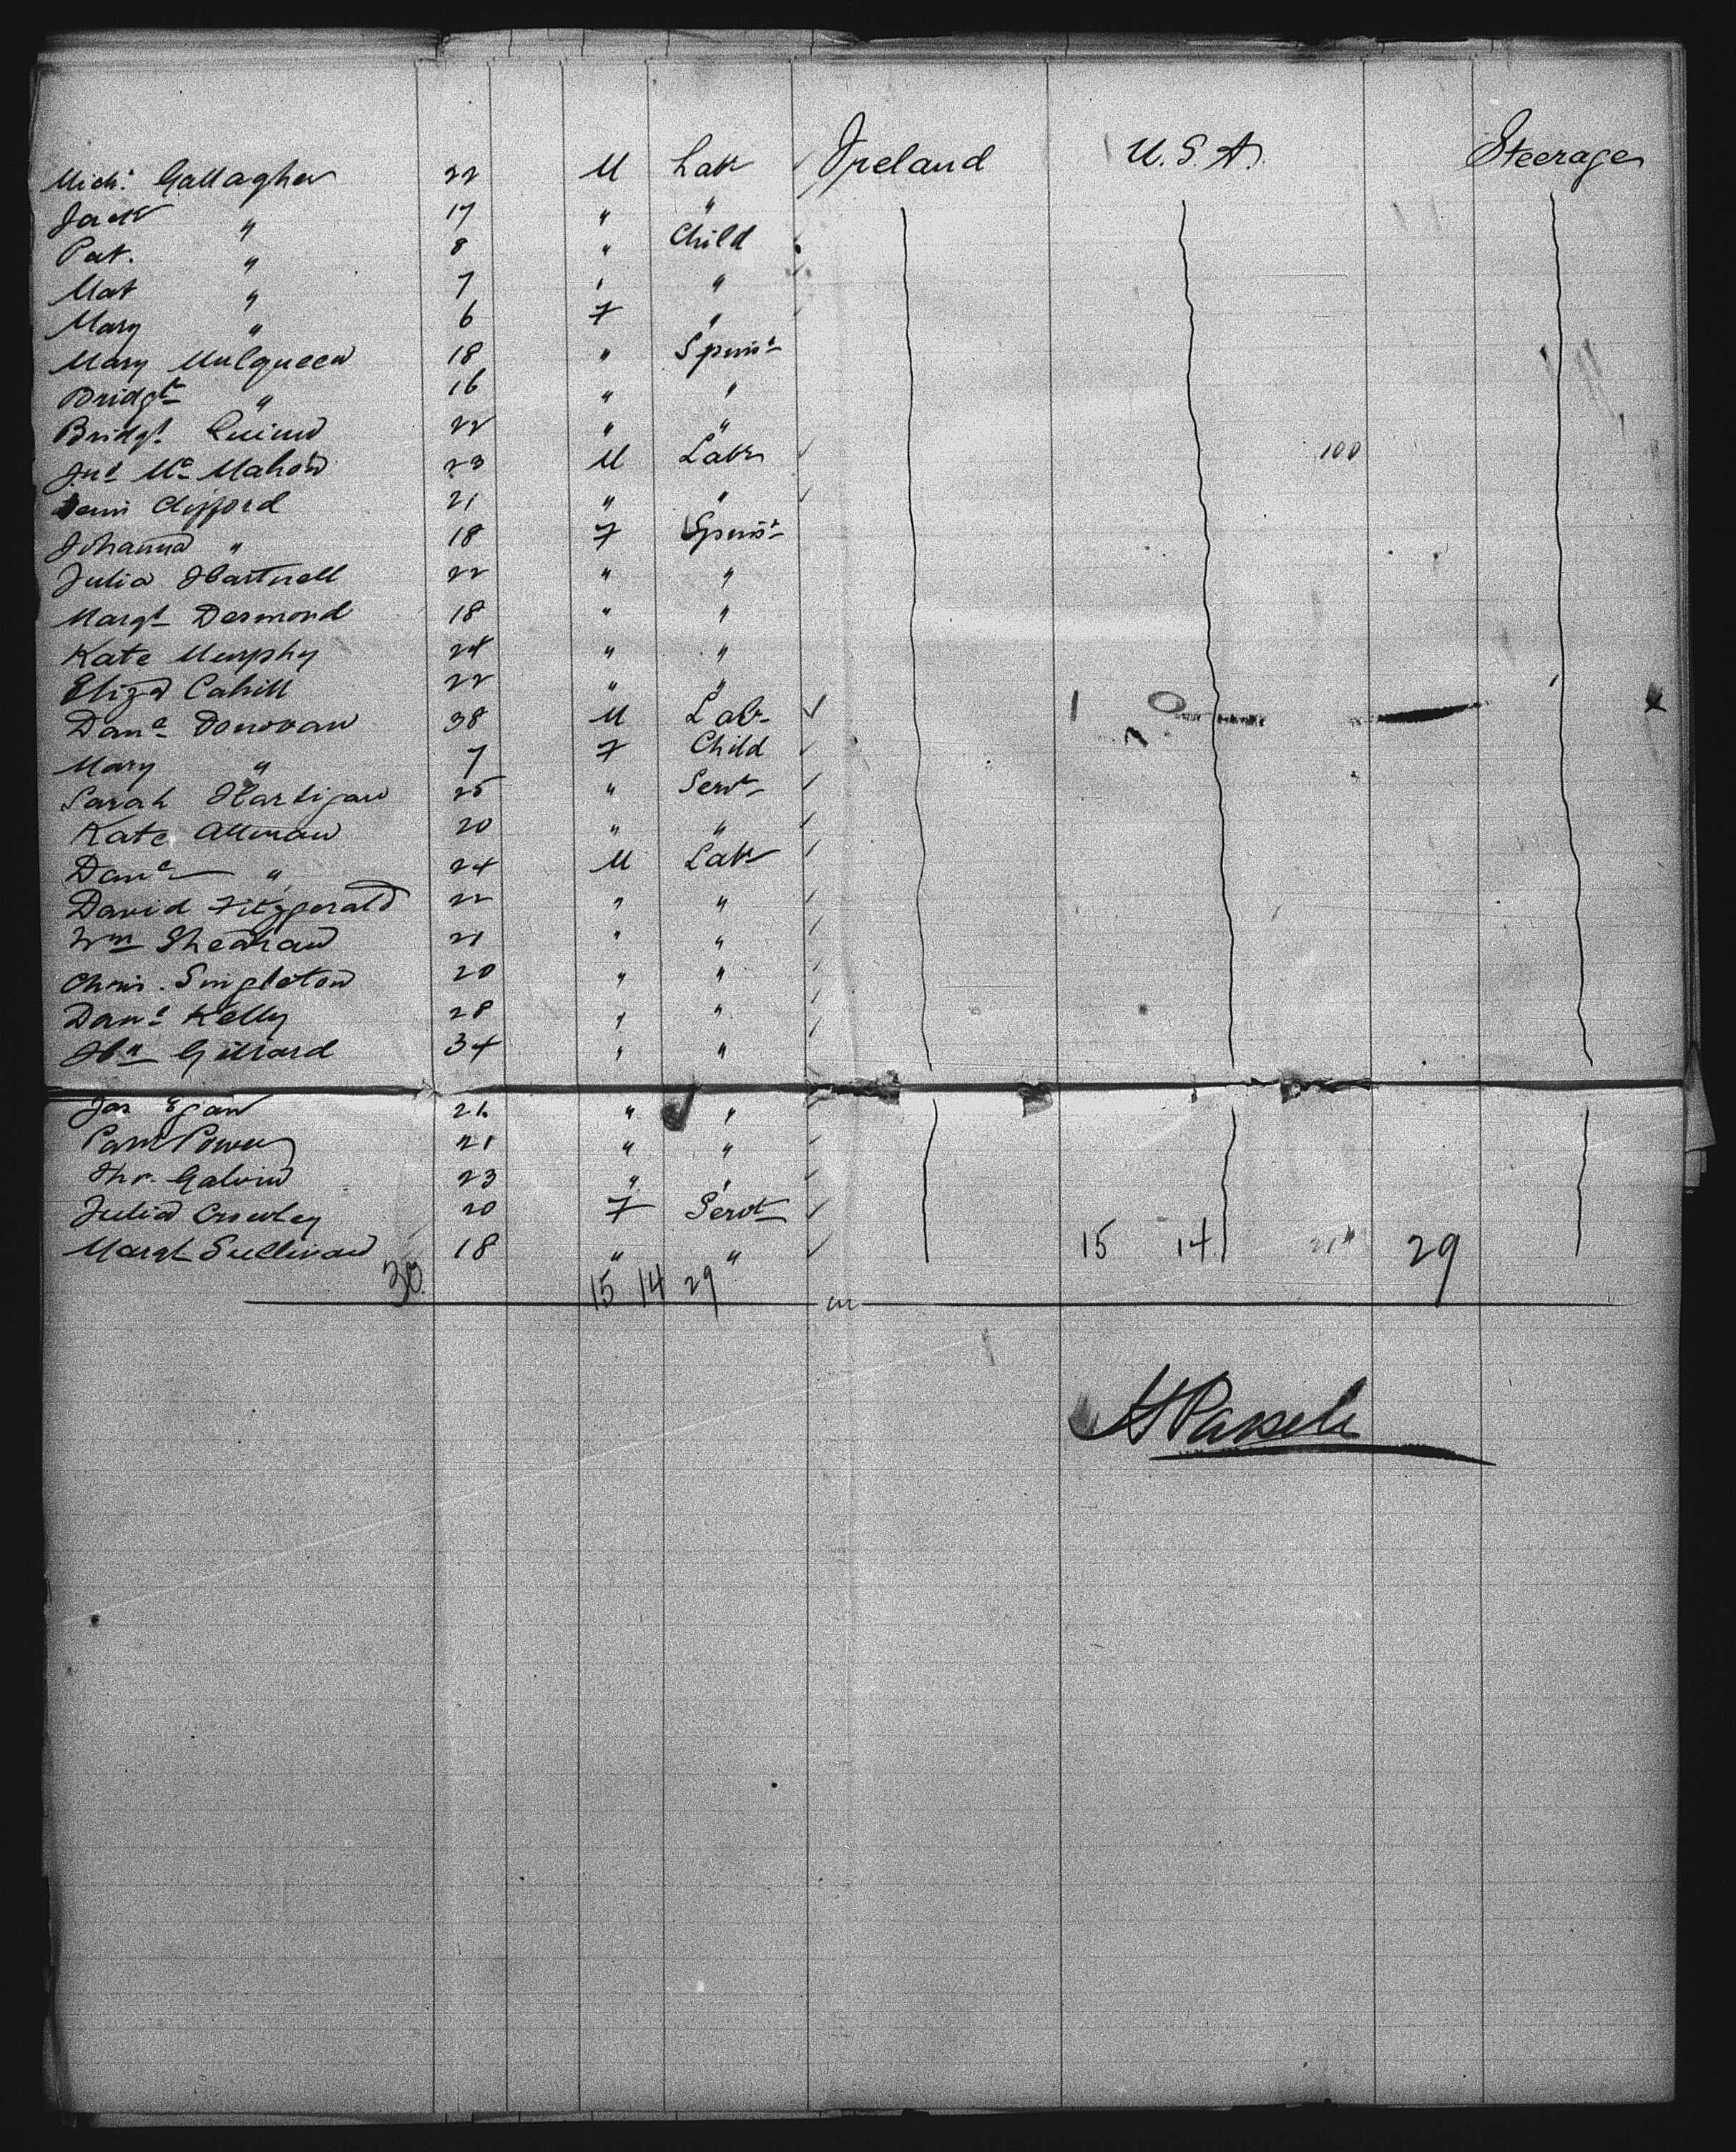 Mich.l Gallagher 22 M Labr Ireland U.S.A. Steerage
Jack " 17 " "
Pat. " 8 " Child
Mat " 7 " "
Mary " 6 F "
Mary Mulqueen 18 " Spinst
Bridgt " 16 " "
Bridgt Quinn 22 " "
Jno Mc Mahon 23 M Labr 100
Clifford 21 " "
Johanna " 18 F Spinst
Julia Hartnell 22 " "
Margt Desmond 18 " "
Kate Murphy 24 " "
Eliza Cahill 22 " "
Danl Donovan 38 M Labr
Mary " 7 F Child
Sarah Hartigan 25 " Servt
Kate Altman 20 " "
Danl " 24 M Labr
David Fitzgerald 22 " "
Wm Sheahan 21 " "
Chris. Singleton 20 " "
Danl Kelly 28 " "
Hy Gillard 34 " "
Jas Egan 21 " "
Power 21 " "
Galvin 23 " "
Julia Crowley 20 F Servt
Margt Sullivan 18 " " 15 14 29
30 15 14 29